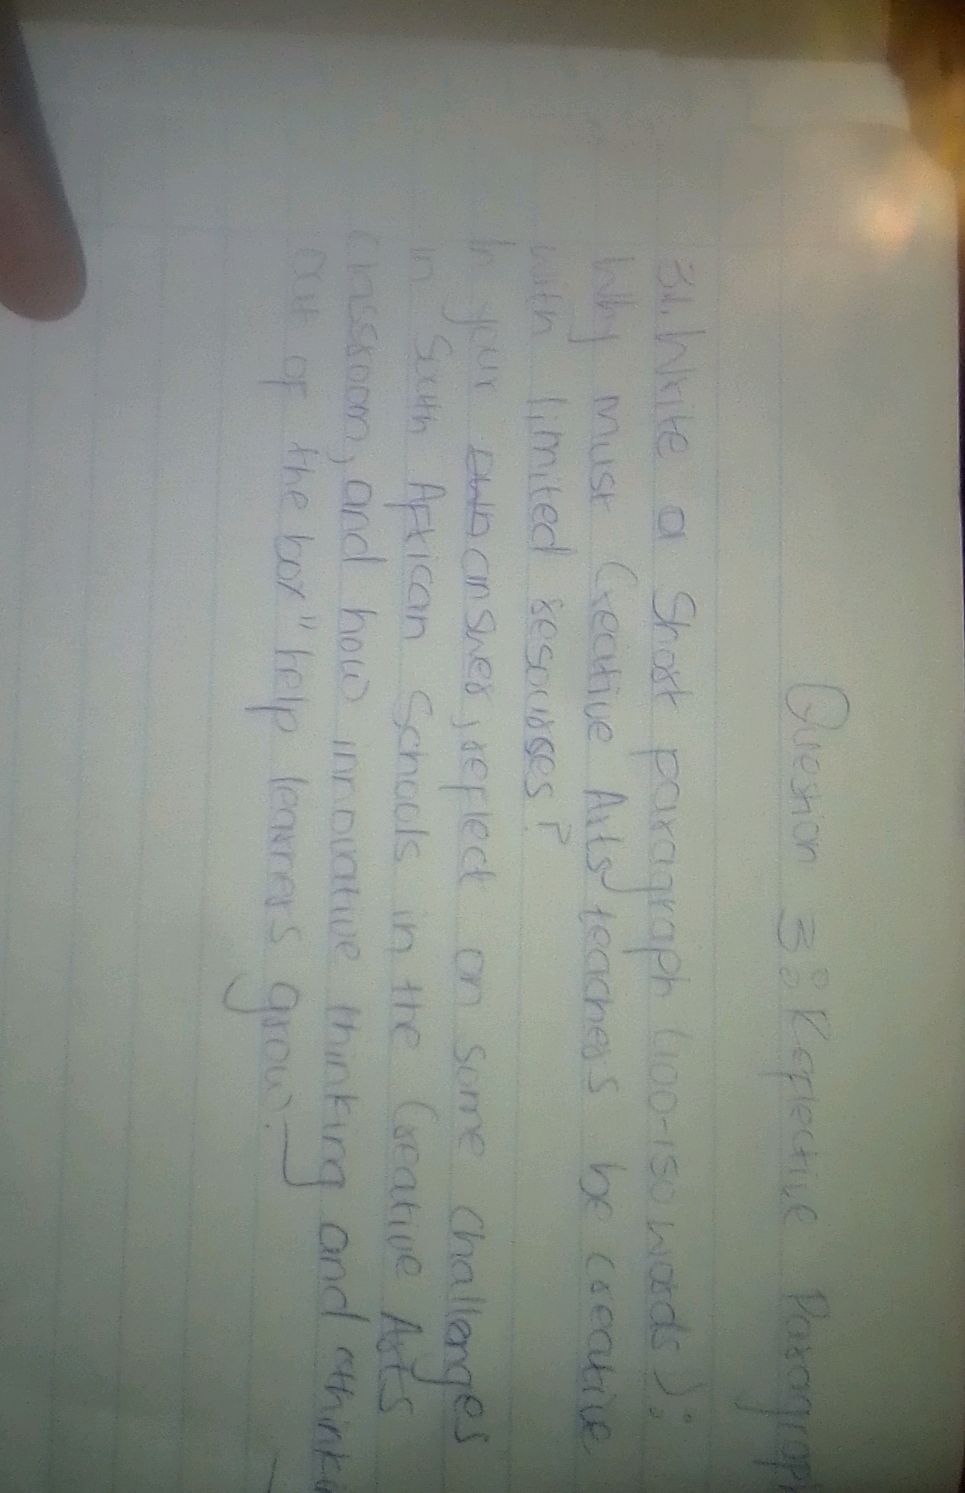 Question 3: Reflective Paragraph
3.1. Write a Short paragraph (100-150 words):
Why must Creative Arts teachers be creative
with limited resourses?
In your own answer, reflect on some challenges
in South African Schools in the Creative Arts
classroom, and how innovative thinking and "thinking
out of the box" help learners grow.